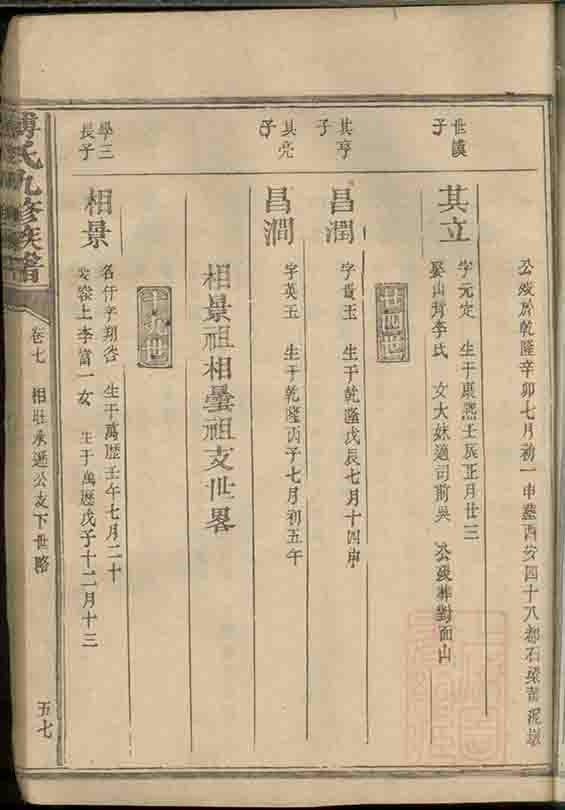 公歿於乾隆辛卯七月初一申葬西安四十八都石梁黃泥墩
世謨
子
其立
字元定 生于康熙壬辰正月廿三
娶山背李氏 女大妹適司前吳 公歿葬對面山
其亨
子
昌潤
字貴玉 生于乾隆戊辰七月十四申
其亮
子
昌澗
字英玉 生于乾隆丙子七月初五午
相景祖相曇祖支世畧
學三
長子
相景
名仟字翔岩 生于萬歷壬午七月二十
娶嶺上李富一女 生于萬歷戊子十二月十三
傅氏九修族譜
卷七 相旺承遜公支下世略
五七